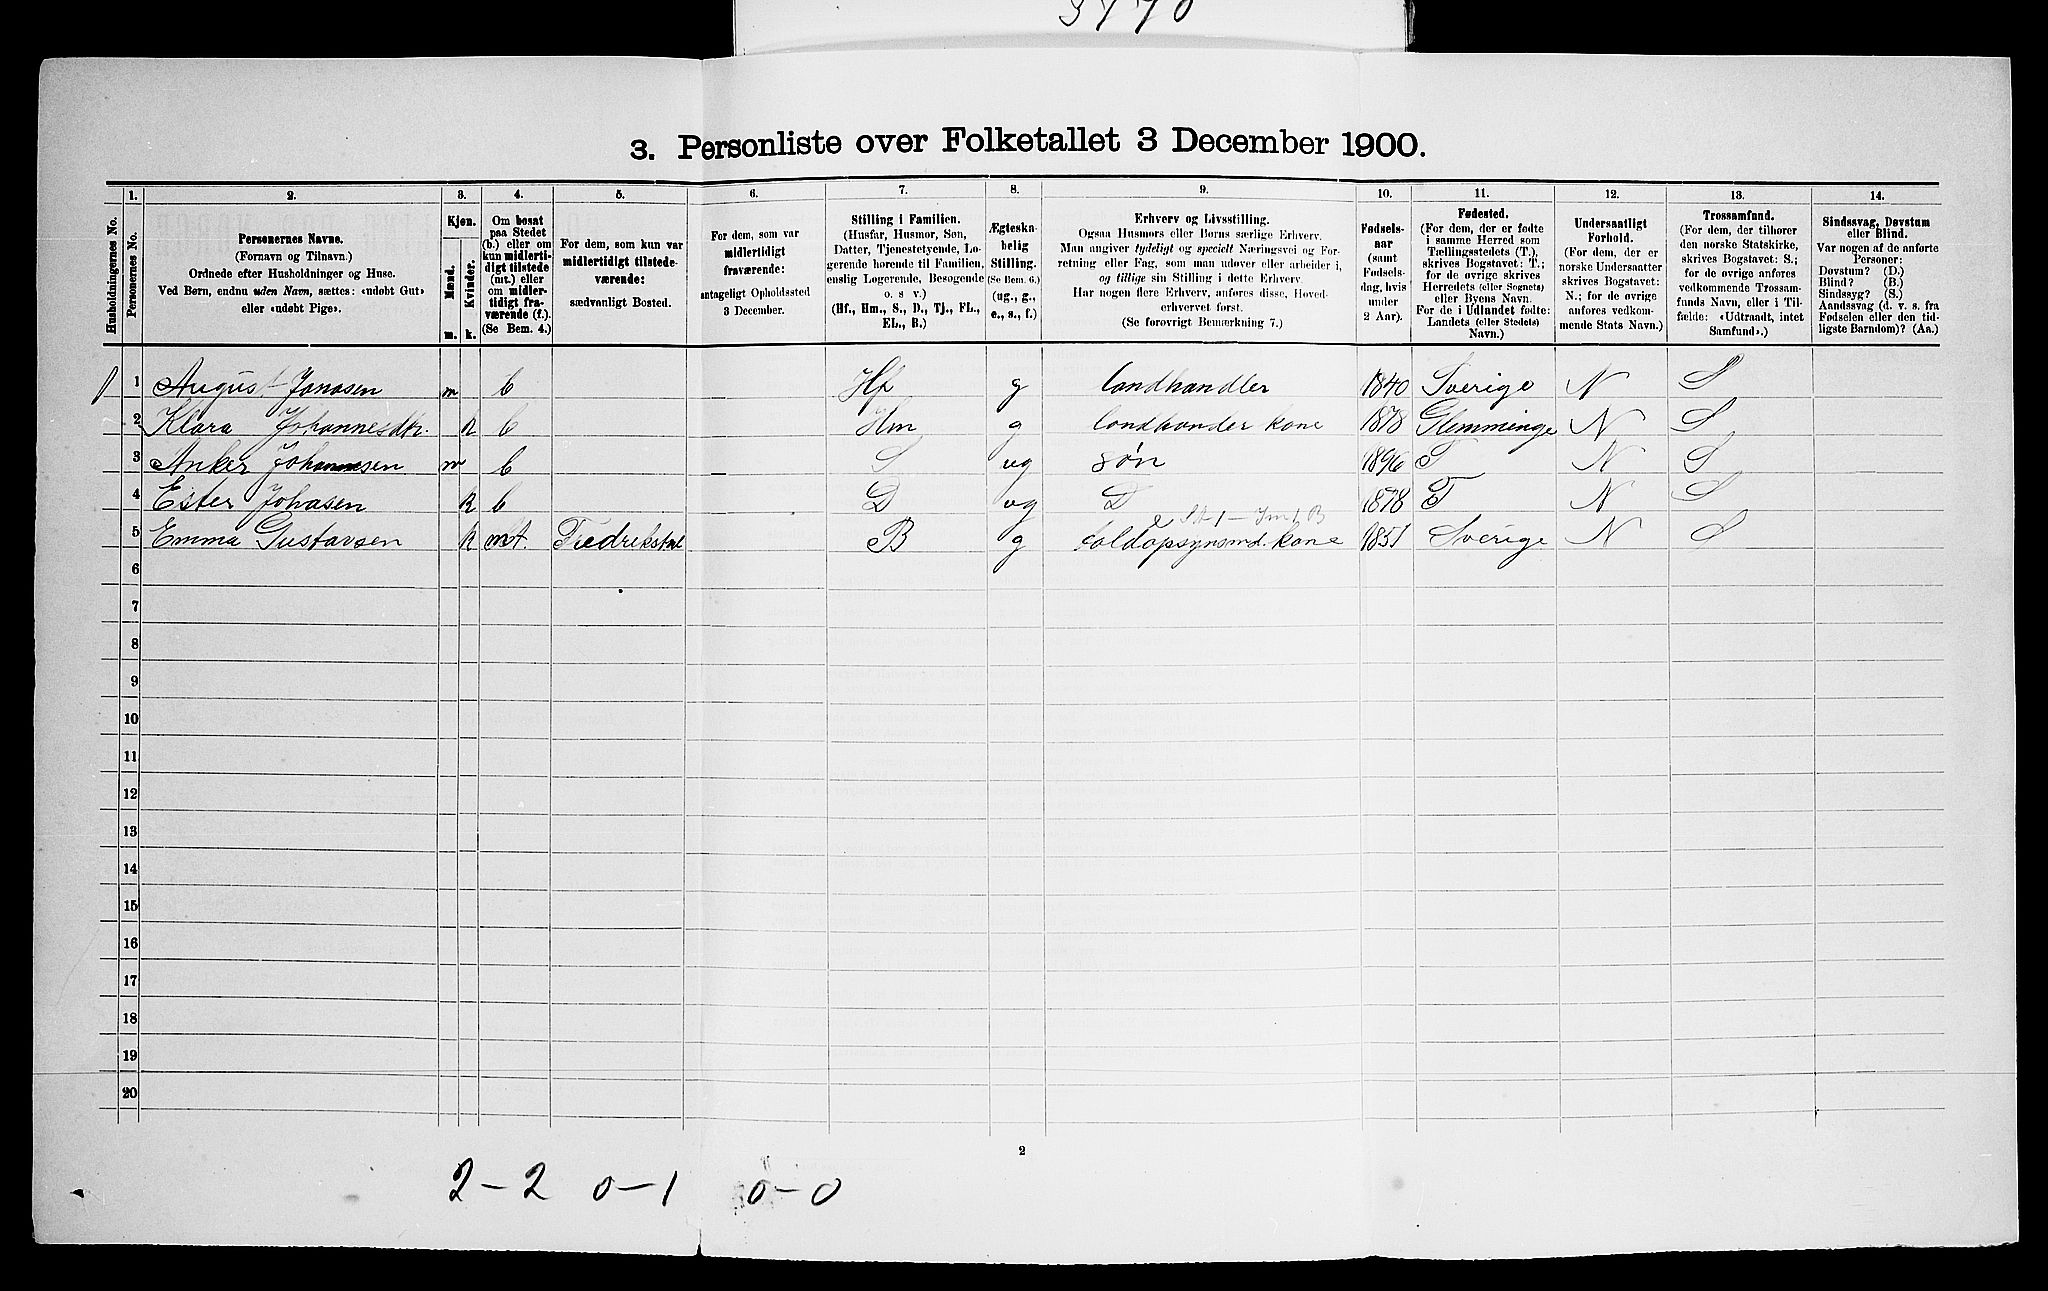 3770
3. Personliste over Folketallet 3 December 1900.
Husholdningernes No.
1.
Personernes No.
2.
Personernes Navne.
(Fornavn og Tilnavn.)
Ordnede efter Husholdninger og Huse.
Ved Børn, endnu uden Navn, sættes: «udøbt Gut»
eller «udøbt Pige».
3.
Kjøn.
Mænd.
Kvinder.
m. k.
4.
Om bosat
paa Stedet
(b.) eller om
kun midlerti-
digt tilstede
(mt.) eller
om midler-
tidigt fra-
værende (f.).
(Se Bem. 4.)
5.
For dem, som kun var
midlertidigt tilstede-
værende:
sædvanligt Bosted.
6.
For dem, som var
midlertidigt
fraværende:
antageligt Opholdssted
3 December.
7.
Stilling i Familien.
(Husfar, Husmor, Søn,
Datter, Tjenestetyende, Lo-
gerende hørende til Familien,
enslig Logerende, Besøgende
o. s. v.)
(Hf., Hm., S., D., Tj., FL.,
EL., B.)
8.
Ægteska-
belig
Stilling.
(Se Bem. 6.)
(ug., g.,
e., s., f.)
9.
Erhverv og Livsstilling.
Ogsaa Husmors eller Børns særlige Erhverv.
Man angiver tydeligt og specielt Næringsvei og For-
retning eller Fag, som man udøver eller arbeider i,
og tillige sin Stilling i dette Erhverv.
Har nogen flere Erhverv, anføres disse, Hoved-
erhvervet først.
(Se forøvrigt Bemærkning 7.)
10.
Fødsels-
aar
(samt
Fødsels-
dag, hvis
under
2 Aar).
11.
Fødested.
(For dem, der er fødte
i samme Herred som
Tællingsstedets (T.),
skrives Bogstavet: T.;
for de øvrige skrives
Herredets (eller Sognets)
eller Byens Navn.
For de i Udlandet fødte:
Landets (eller Stedets)
Navn.)
12.
Undersaatligt
Forhold.
(For dem, der er
norske Undersaatter
skrives Bogstavet:
N.; for de øvrige
anføres vedkom-
mende Stats Navn.)
13.
Trossamfund.
(For dem, der tilhører
den norske Statskirke,
skrives Bogstavet: S.;
for de øvrige anføres
vedkommende Trossam-
funds Navn, eller i Til-
fælde: «Udtraadt, intet
Samfund».)
14.
Sindssvag, Døvstum
eller Blind.
Var nogen af de anførte
Personer:
Døvstum? (D.)
Blind? (B.)
Sindssyg? (S.)
Aandssvag (d. v. s. fra
Fødselen eller den tid-
ligste Barndom)? (Aa.)
1 August Jonasen m b Hf g landhandler 1840 Sverige N S
2 Klara Johannesdtr. k b Hm g landhander kone 1878 Glemminge N S
3 Anker Johannesen m b S ug søn 1896 T N S
4 Ester Johasen k b D ug D 1878 T N S
5 Emma Gustavsen k mt. Fredrikstad B g toldopsynsmd. kone 1851 Sverige N S
6
7
8
9
10
11
12
13
14
15
16
17
18
19
20
2
2-2 0-1 0-0